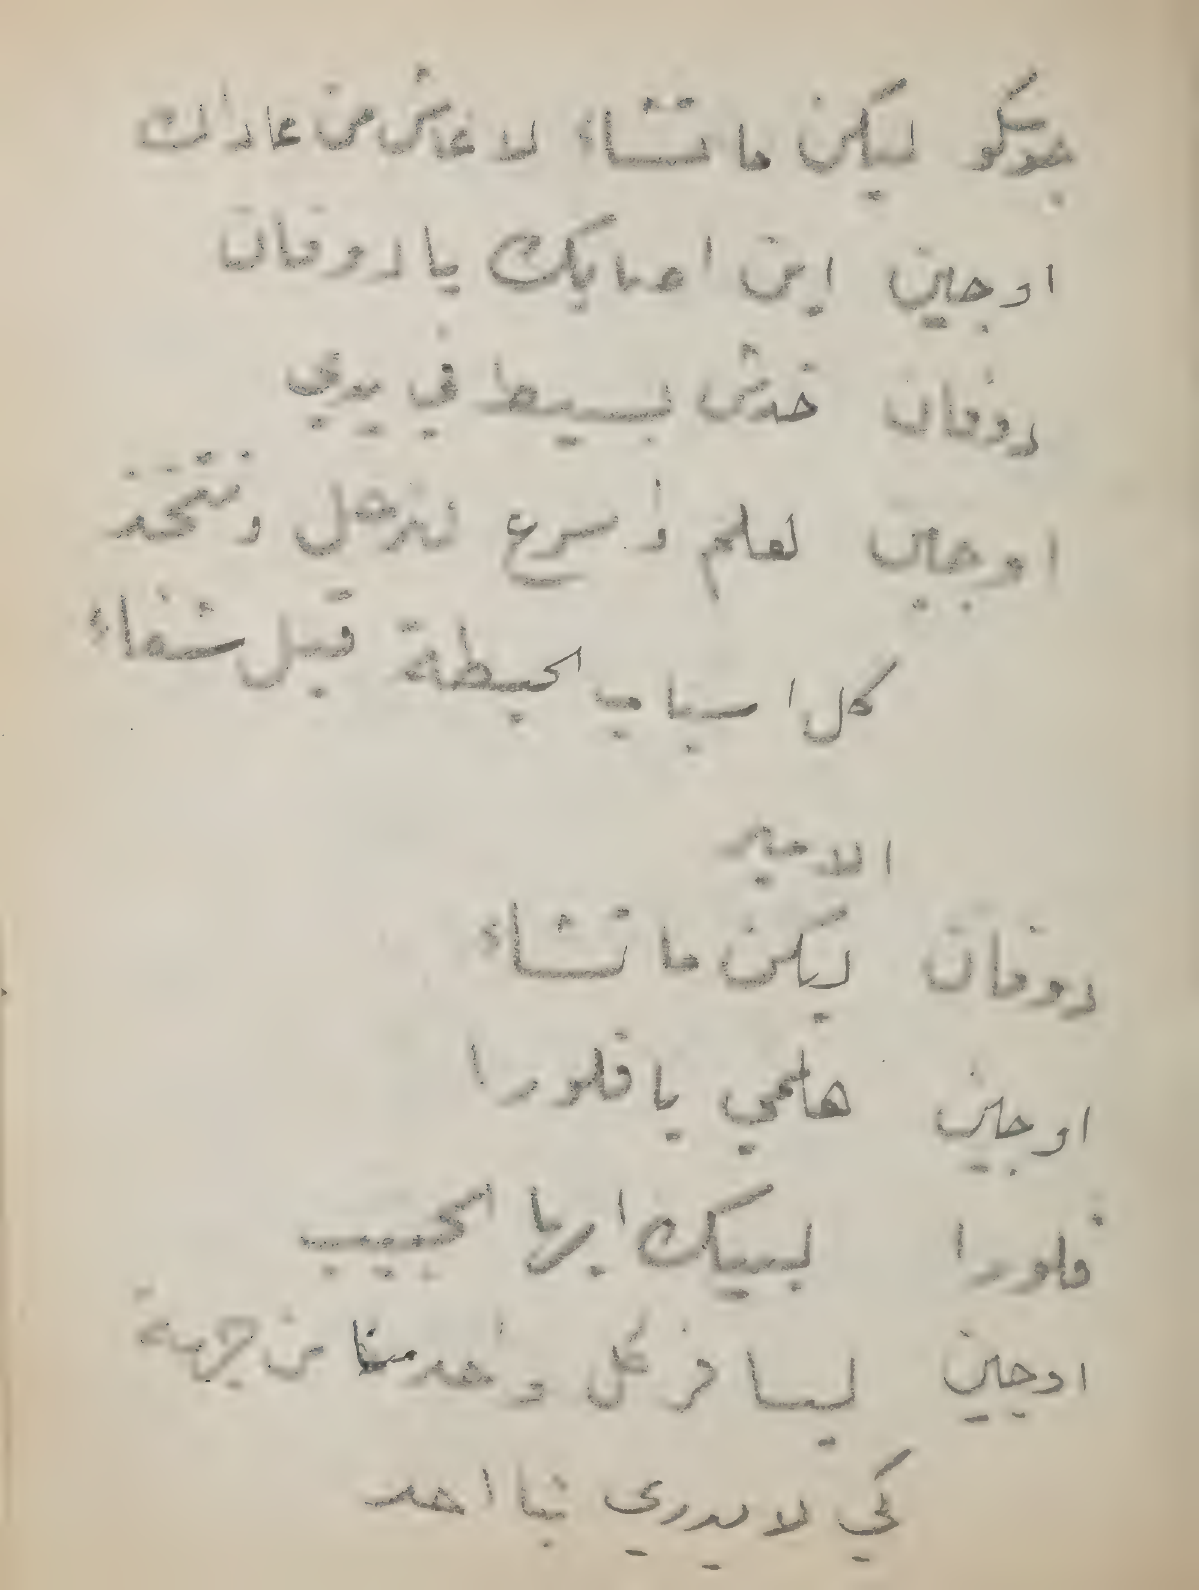 جوكو ليكن ما تشاء لا عاش من عاداك
اوجين اين اصابك يا دوفان
دوفان خدش بسيط في يدي
اوجين لعلم واسرع لنرحل ونتخذ
كل اسباب الحيطة قبل شفاء
الامير
دوفان ليكن ما تشاء
اوجين هلمي يا فلورا
فلورا لبيك ايها الحبيب
اوجين ليسافر كل واحد منا من جهة
كي لا يدري بنا احد